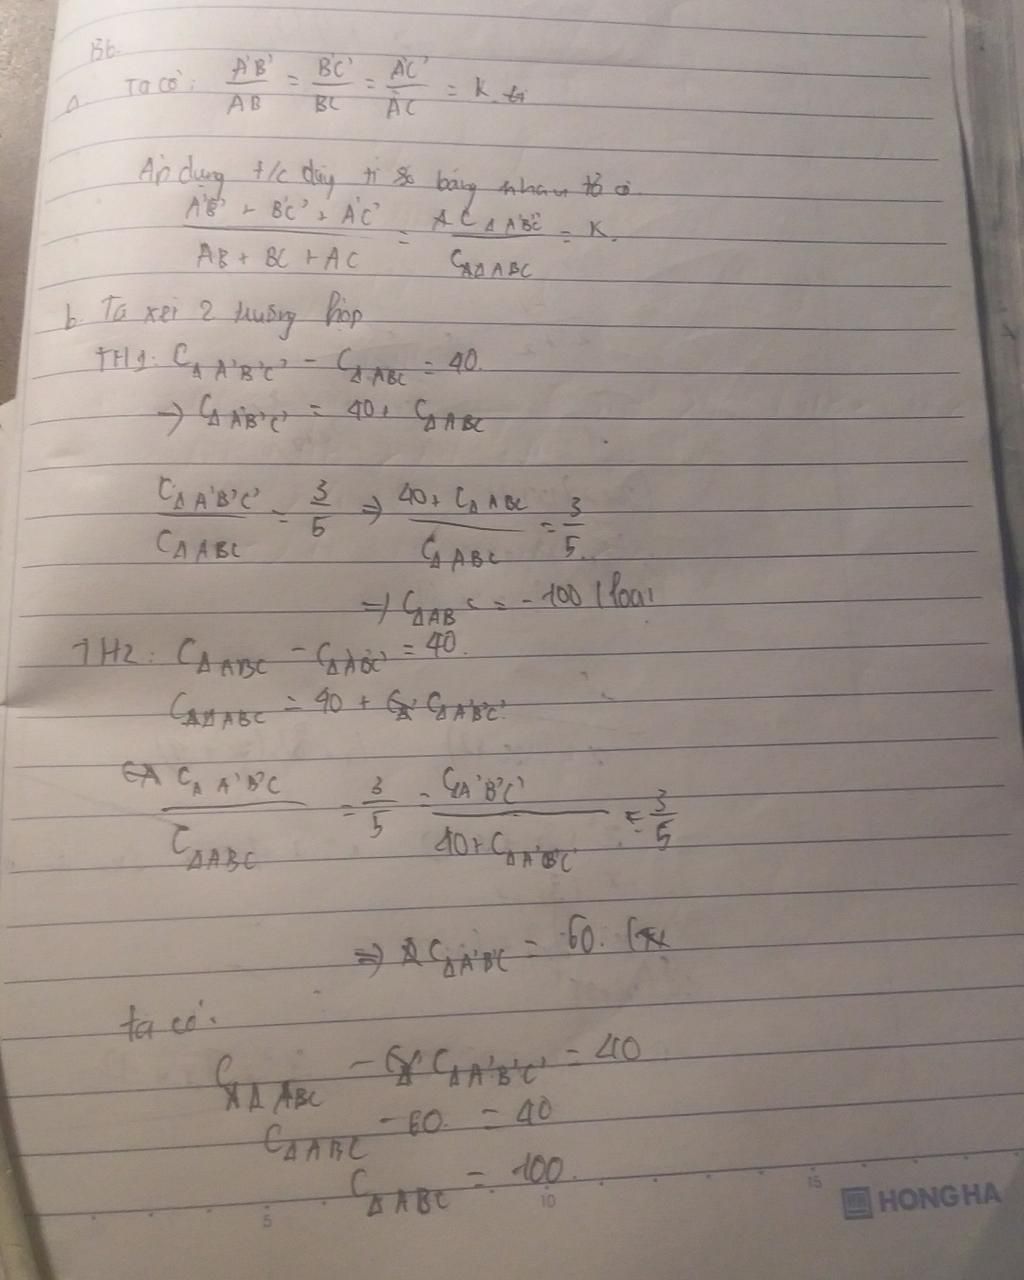 B6.
a. Ta có: A'B'/AB = B'C'/BC = A'C'/AC = K.
Áp dụng t/c dãy tỉ số bằng nhau ta có
A'B' + B'C' + A'C' / AB + BC + AC = C Δ A'B'C' / C Δ ABC = K.
b. Ta xét 2 trường hợp
TH1: C Δ A'B'C' - C Δ ABC = 40.
→ C Δ A'B'C' = 40 + C Δ ABC
C Δ A'B'C' / C Δ ABC = 3/5 ⇒ 40 + C Δ ABC / C Δ ABC = 3/5.
⇒ C Δ ABC = -100 (loại
TH2: C Δ ABC - C Δ A'B'C' = 40.
C Δ ABC = 40 + C Δ A'B'C'
C Δ A'B'C' / C Δ ABC = 3/5 = C Δ A'B'C' / 40 + C Δ A'B'C' = 3/5
⇒ C Δ A'B'C' = 60.
ta có.
C Δ ABC - C Δ A'B'C' = 40
C Δ ABC - 60 = 40
C Δ ABC = 100.
5 10 15
HONG HA